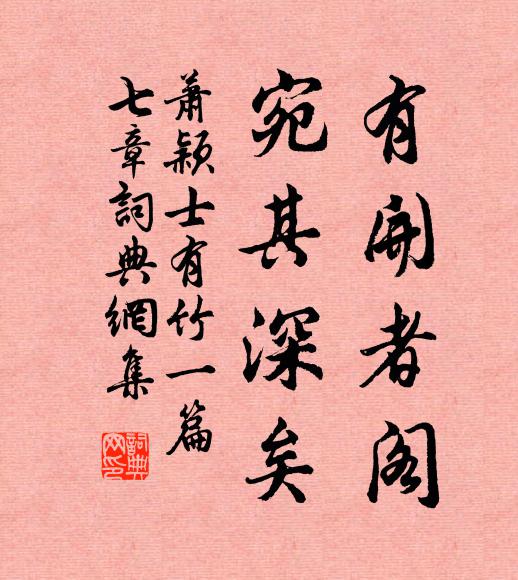 有開者閣
宛其深矣
蕭穎士有竹一篇
七章詞典網集
詞典網印